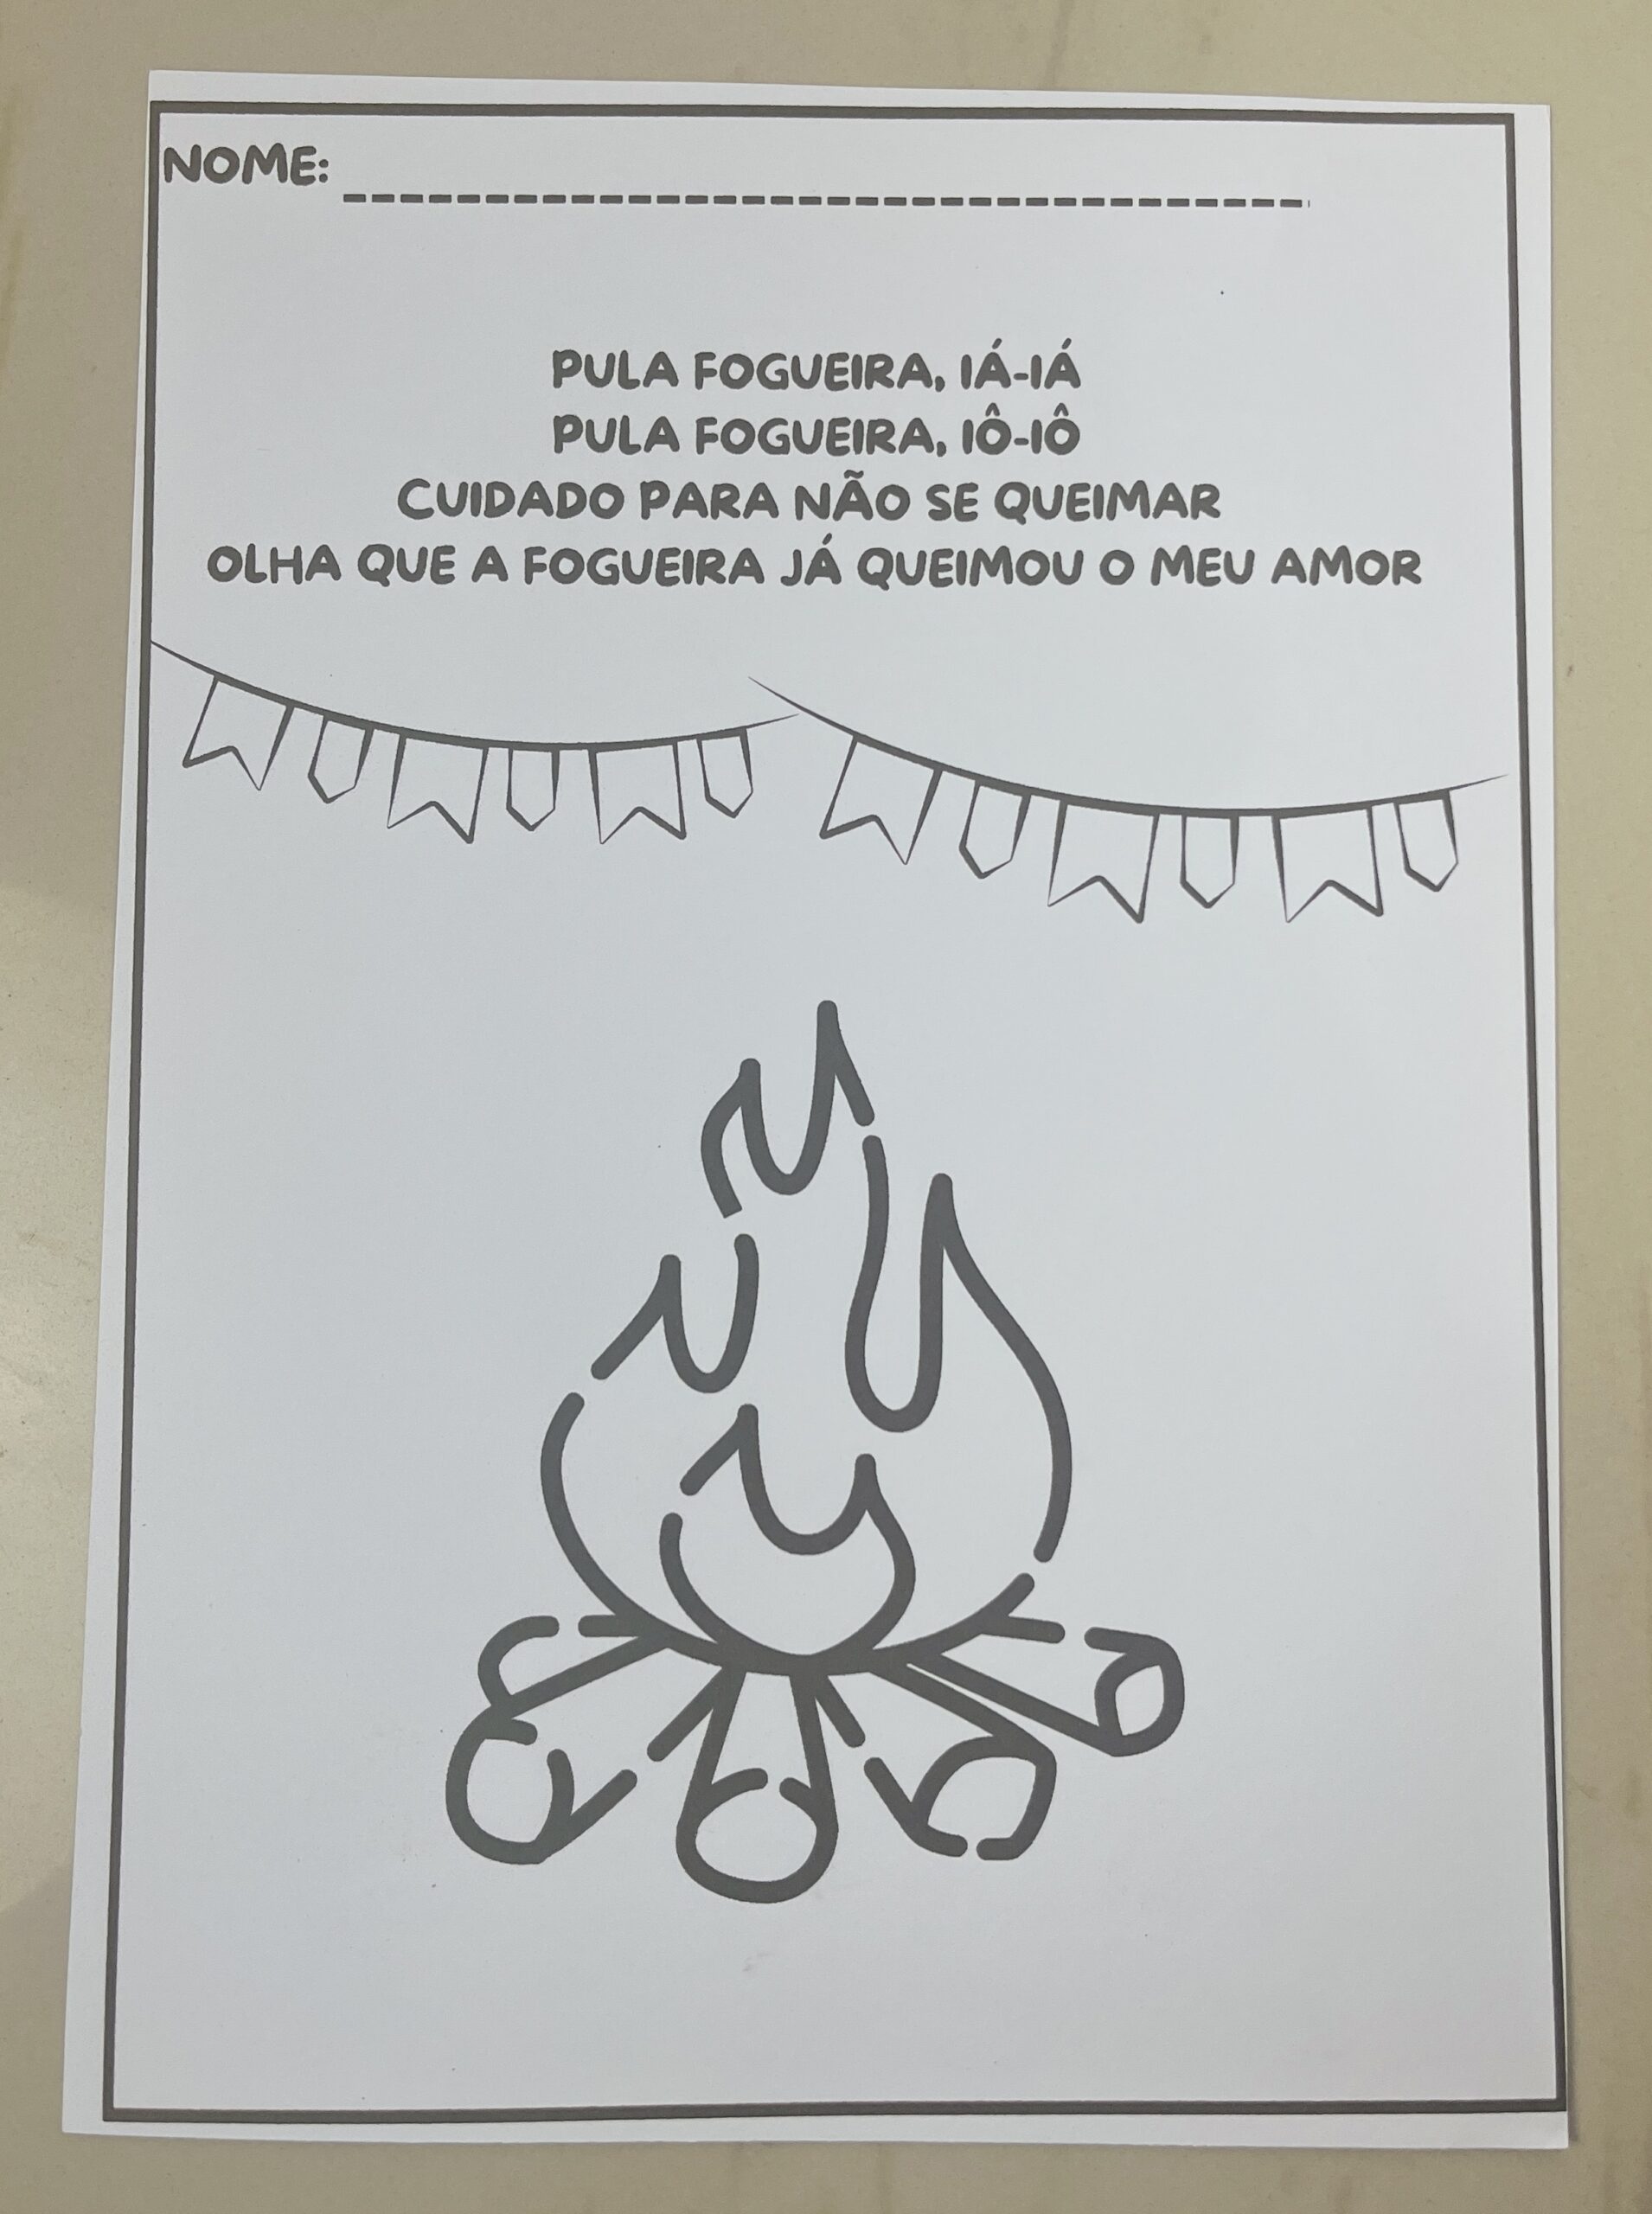 NOME:
PULA FOGUEIRA, IÁ-IÁ
PULA FOGUEIRA, IÔ-IÔ
CUIDADO PARA NÃO SE QUEIMAR
OLHA QUE A FOGUEIRA JÁ QUEIMOU O MEU AMOR